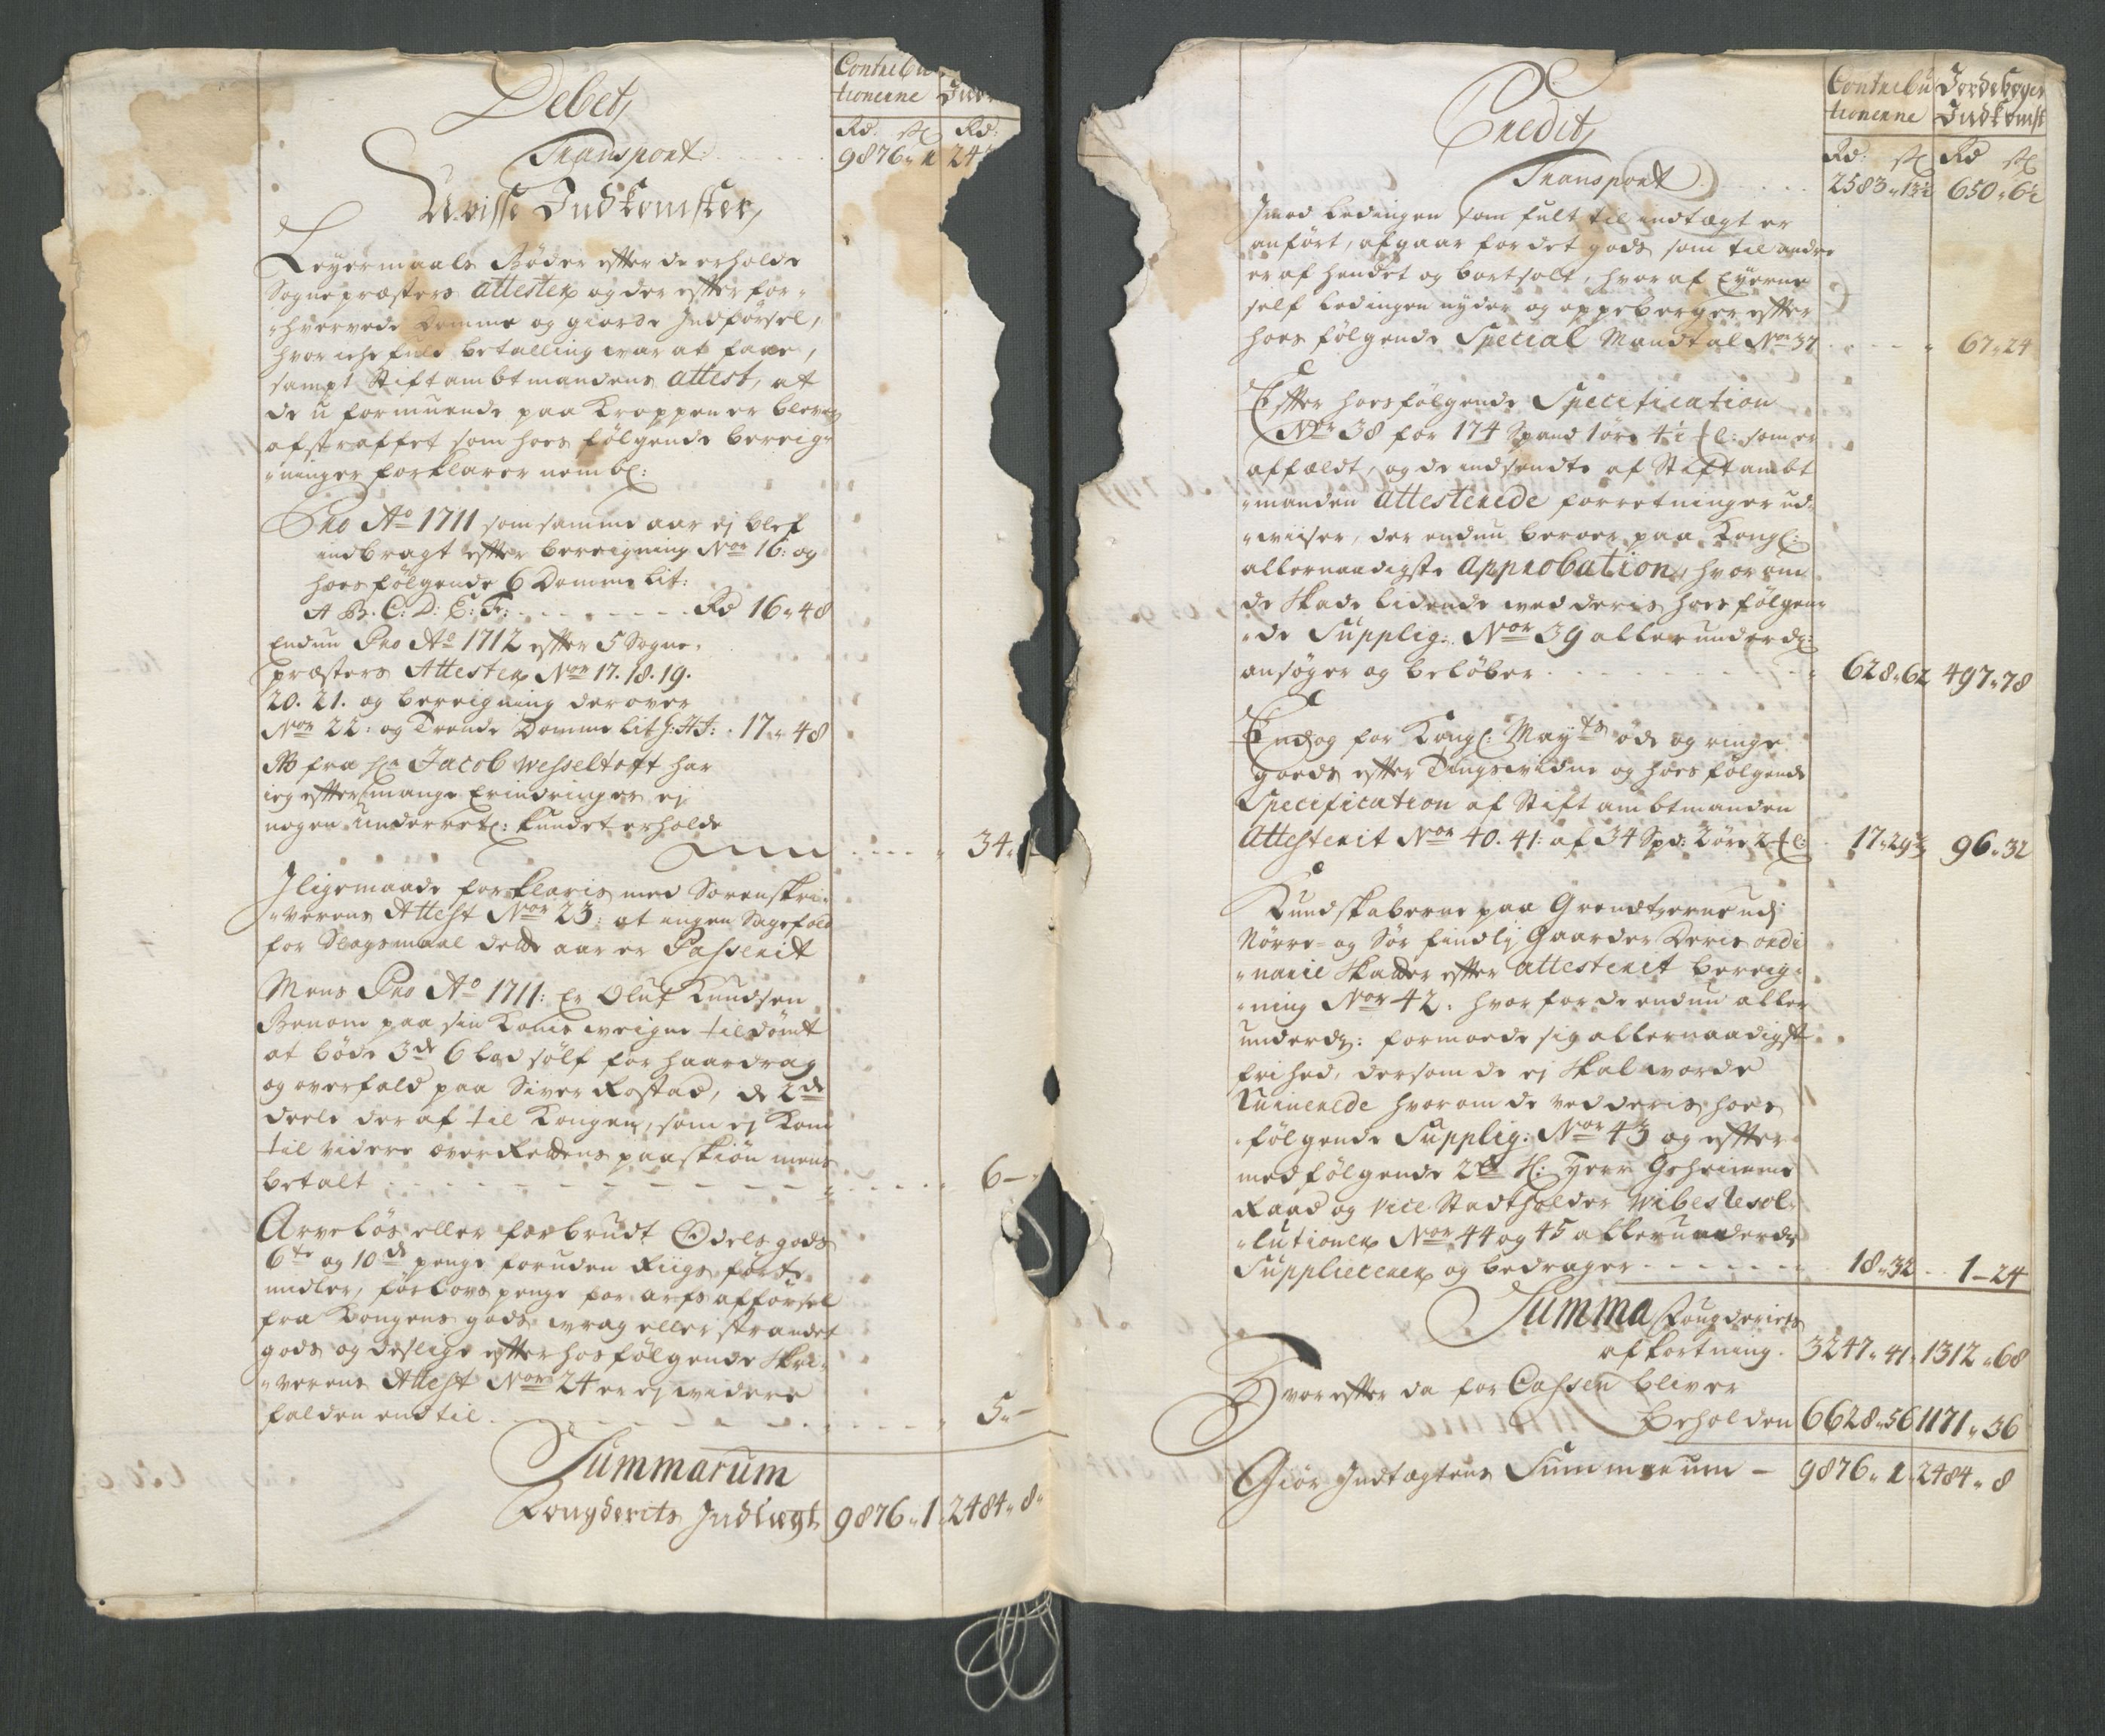 Debet
Contribu
tionerne Indk
Rd: sk Rd:
Transport 9876 „ 1 24
Uvisse Indkomster,
Leyermaals Bøder efter de erholde
Sogne præsters attester og der efter for-
„hvervede Domme og giorde Indførsel,
hvor iche fuld betalling war at faae,
sampt Stiftambtmandens attest, at
de uformuende paa Kroppen er bleven
afstraffet som hoes følgende bereig-
„ninger forklarer nembl:
Pro Ao 1711 som samme aar ej blef
indbragt efter bereigning Nor 16: og
hoes følgende 6 Domme Lit:
A B. C: D: E: F: Rd 16 „ 48
Endnu Pro Ao 1712 efter 5 Sogne-
præsters Attester Nor 17. 18. 19.
20. 21. og bereigning derover
Nor 22: og Trende Domme Lit G: H J: 17 „ 48
NB fra Hr Jacob Wesseltoft har
ieg efter mange Erindringer ej
nogen underret: kundet erholde
34 „
Jligemaade forklaris med Sorenskri-
„verens Attest Nor 23: at ingen Sagefald
for Slagsmaal dette aar er Passerit
Mens Pro Ao 1711: Er Oluf Knudsen
paa sin Kones weigne tildømt
at bøde 3de 6 lod sølf for haardrag
og overfald paa Siver Rostad, de 2de
deele deraf til Kongen, som ej kom
til videre over Rettens paaskiøn mens
betalt 6 —
Arveløs eller forbrudt Odels gods
6te og 10de penge foruden Riigs førte
midler, førlovs penge for arfs afførsel
fra Kongens gods wrag eller strandet
gods og deslige efter hos følgende Skri-
„verens Attest Nor 24 er ej widere
falden end til 5 „ —
Summarum
Fougderits Indtægt 9876 „ 1 „ 2484 „ 8 „
Credit
Contribu Jordebogens
tionerne Indkomst
Rd: sk Rd sk
Transport 2583 „ 13½ 650 „ 6½
Imod Ledingen som fult til indtægt er
anført, afgaar for det gods som til andre
er af hendet og bortsolt, hvoraf Eyerne
self Ledingen nyder og oppeberger efter
hoes følgende Special Mandtal Nor 37 „ 67 „ 24
Efter hoes følgende Specification
Nor 38 for 174 Spand 1 øre 4½ som er
affældt, og de indsendte af Stiftambt
„manden attesterede forretninger ud-
„wiiser, der endnu beroer paa Kongl:
allernaadigste Approbation, hvorom
de skade lidende med deris hoes følgen-
„de Supplig: Nor 39 allerunderd:
ansøger og beløber 628 „ 62 497 „ 78
Endog for Kongl: Mayts øde og ringe
goeds efter Tingswidne og hoes følgende
Specification af Stiftambtmanden
Attesterit Nor 40. 41: af 34 Spd: 2 øre 2 17 „ 29 96 „ 32
Kundskaberne paa Grendtzerne udj
Nörre- og Sör findlj Gaarder Deris ordi
„narie Skatter efter attesterit bereig-
„ning Nor 42: hvor for de endnu aller
underd: formoede sig allernaadigst
frihed, dersom de ej skal worde
Ruinerede hvorom de ved deris hoes
følgende Supplig: Nor 43 og efter
medfølgende 2de Hr: Herr Geheimme
Raad og Vice Stadtholder Wibes Resol-
„lutioner Nor 44 og 45 allerunderd
Supplicerer og bedrager 18 „ 32 1 — 24
Summa Fougderiets
afkortning. 3247 „ 41 „ 1312 „ 68
Hvorefter da for Cassen bliver
Beholden 6628 „ 56 1171 „ 36
Giør Indtægtens Summarum — 9876 „ 1 „ 2484 „ 8